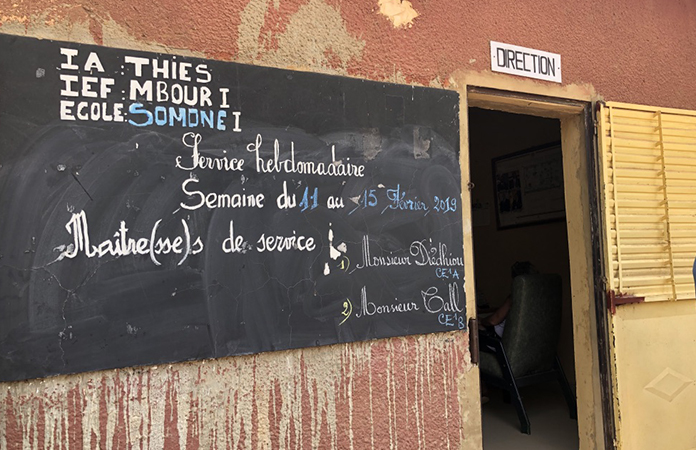 DIRECTION
IA THIES
IEF MBOUR I
ECOLE: SOMONE I
Service hebdomadaire
Semaine du 11 au 15 Février 2019
Maître(sse)s de service :
1) Monsieur Diédhiou
CE1A
2) Monsieur Tall
CE1B